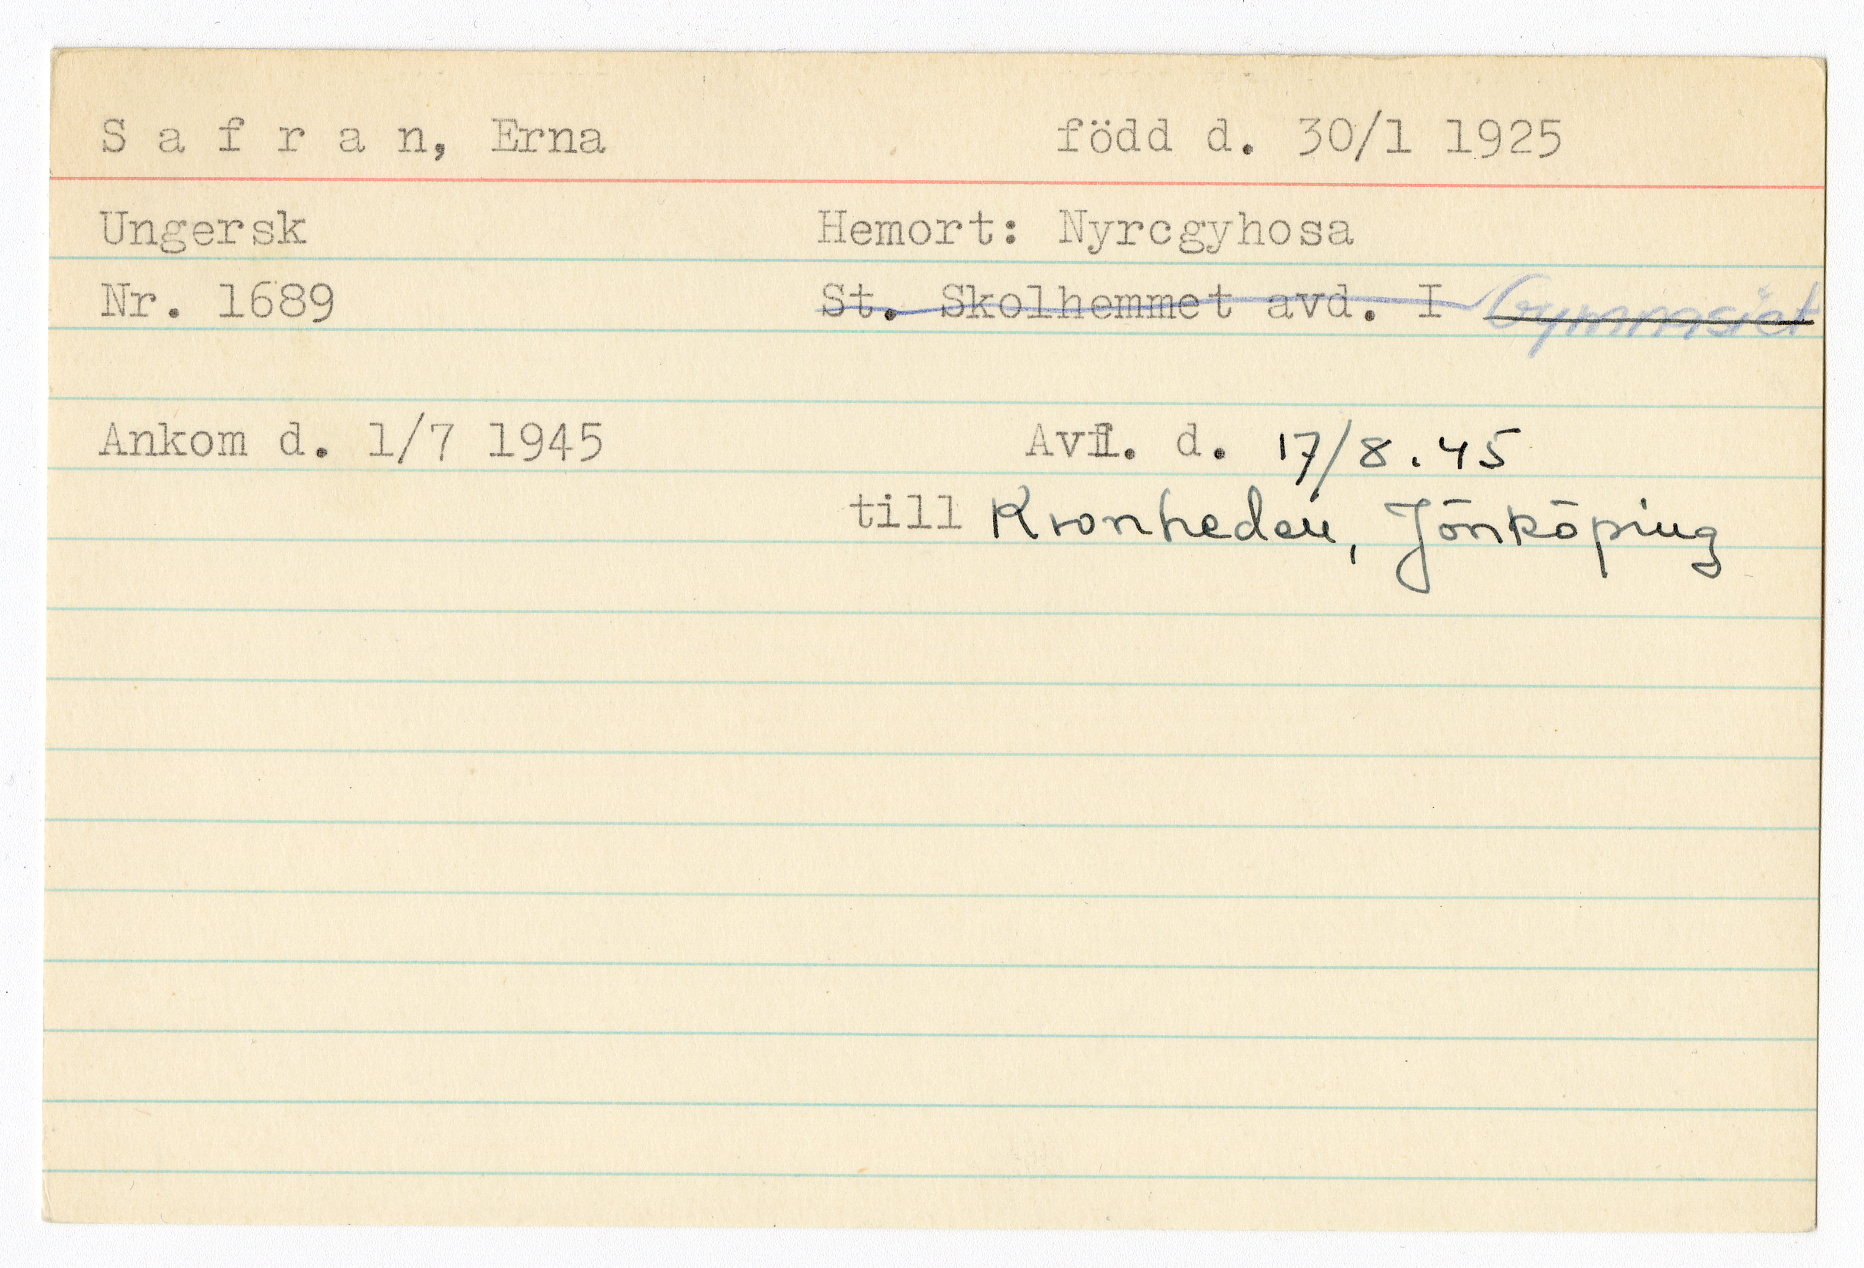 S a f r a n, Erna född d. 30/1 1925
Ungersk Hemort: Nyrcgyhosa
Nr. 1689 St. Skolhemmet avd. I Gymnasiet
Ankom d. 1/7 1945 Avfl. d. 17/8.45
till Kronheden, Jönköping